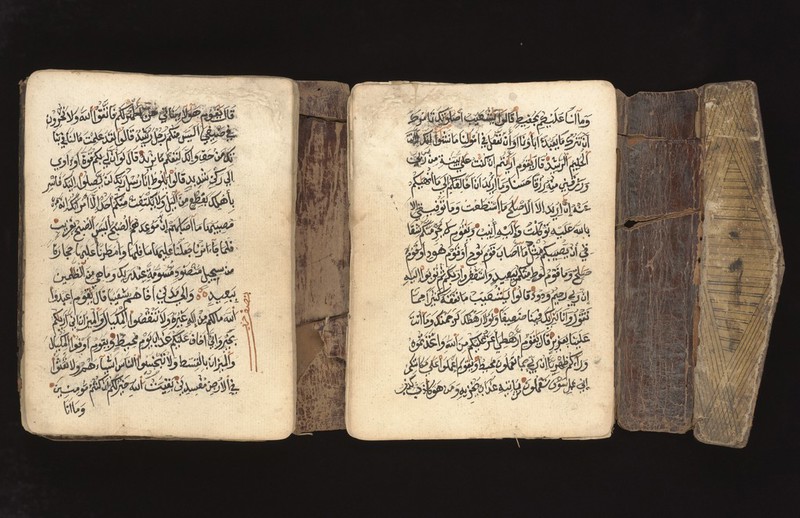 قال يقوم هؤلاء بناتي هن أطهر لكم فاتقوا الله ولا تخزون
في ضيفي أليس منكم رجل رشيد قالوا لقد علمت ما لنا في بنا
تك من حق وإنك لتعلم ما نريد قال لو أن لي بكم قوة أو اوي
إلى ركن شديد قالوا يلوط إنا رسل ربك لن يصلوا إليك فاسر
بأهلك بقطع من اليل ولا يلتفت منكم أحد إلا امرأتك إنه
مصيبها ما أصابهم إن موعدهم الصبح أليس الصبح بقريب
فلما جاء أمرنا جعلنا عليها سافلها وأمطرنا عليها حجارة
من سجيل منضود مسومة عند ربك وما هي من الظلمين
ببعيد وإلى مدين أخاهم شعيبا قال يقوم اعبدوا
الله ما لكم من إله غيره ولا تنقصوا المكيال والميزان إني أريكم
بخير وإني أخاف عليكم عذاب يوم محيط ويقوم أوفوا المكيال
والميزان بالقسط ولا تبخسوا الناس أشياءهم ولا تعثوا
في الأرض مفسدين بقيت الله خير لكم إن كنتم مؤمنين
وما أنا
وما أنا عليكم بحفيظ قالوا يشعيب أصلوتك تأمرك
أن نترك ما يعبد اباؤنا أو أن نفعل في أمولنا ما نشؤا إنك لأنت
الحليم الرشيد قال يقوم أريتم إن كنت على بينة من ربي
ورزقني منه رزقا حسنا وما أريد أن أخالفكم إلى ما أنهيكم
عنه إن أريد إلا الإصلح ما استطعت وما توفيقي إلا
بالله عليه توكلت وإليه أنيب ويقوم لا يجرمنكم شقا
قي أن يصيبكم مثل ما أصاب قوم نوح أو قوم هود أو قوم
صلح وما قوم لوط منكم ببعيد واستغفروا ربكم ثم توبوا إليه
إن ربي رحيم ودود قالوا يشعيب ما نفقه كثيرا مما
تقول وإنا لنريك فينا ضعيفا ولولا رهطك لرجمنك وما أنت
علينا بعزيز قال يقوم أرهطي أعز عليكم من الله واتخذتموه
وراءكم ظهريا إن ربي بما تعملون محيط ويقوم اعملوا على مكانتكم
إني عمل سوف تعلمون من يأتيه عذاب يخزيه ومن هو كذب